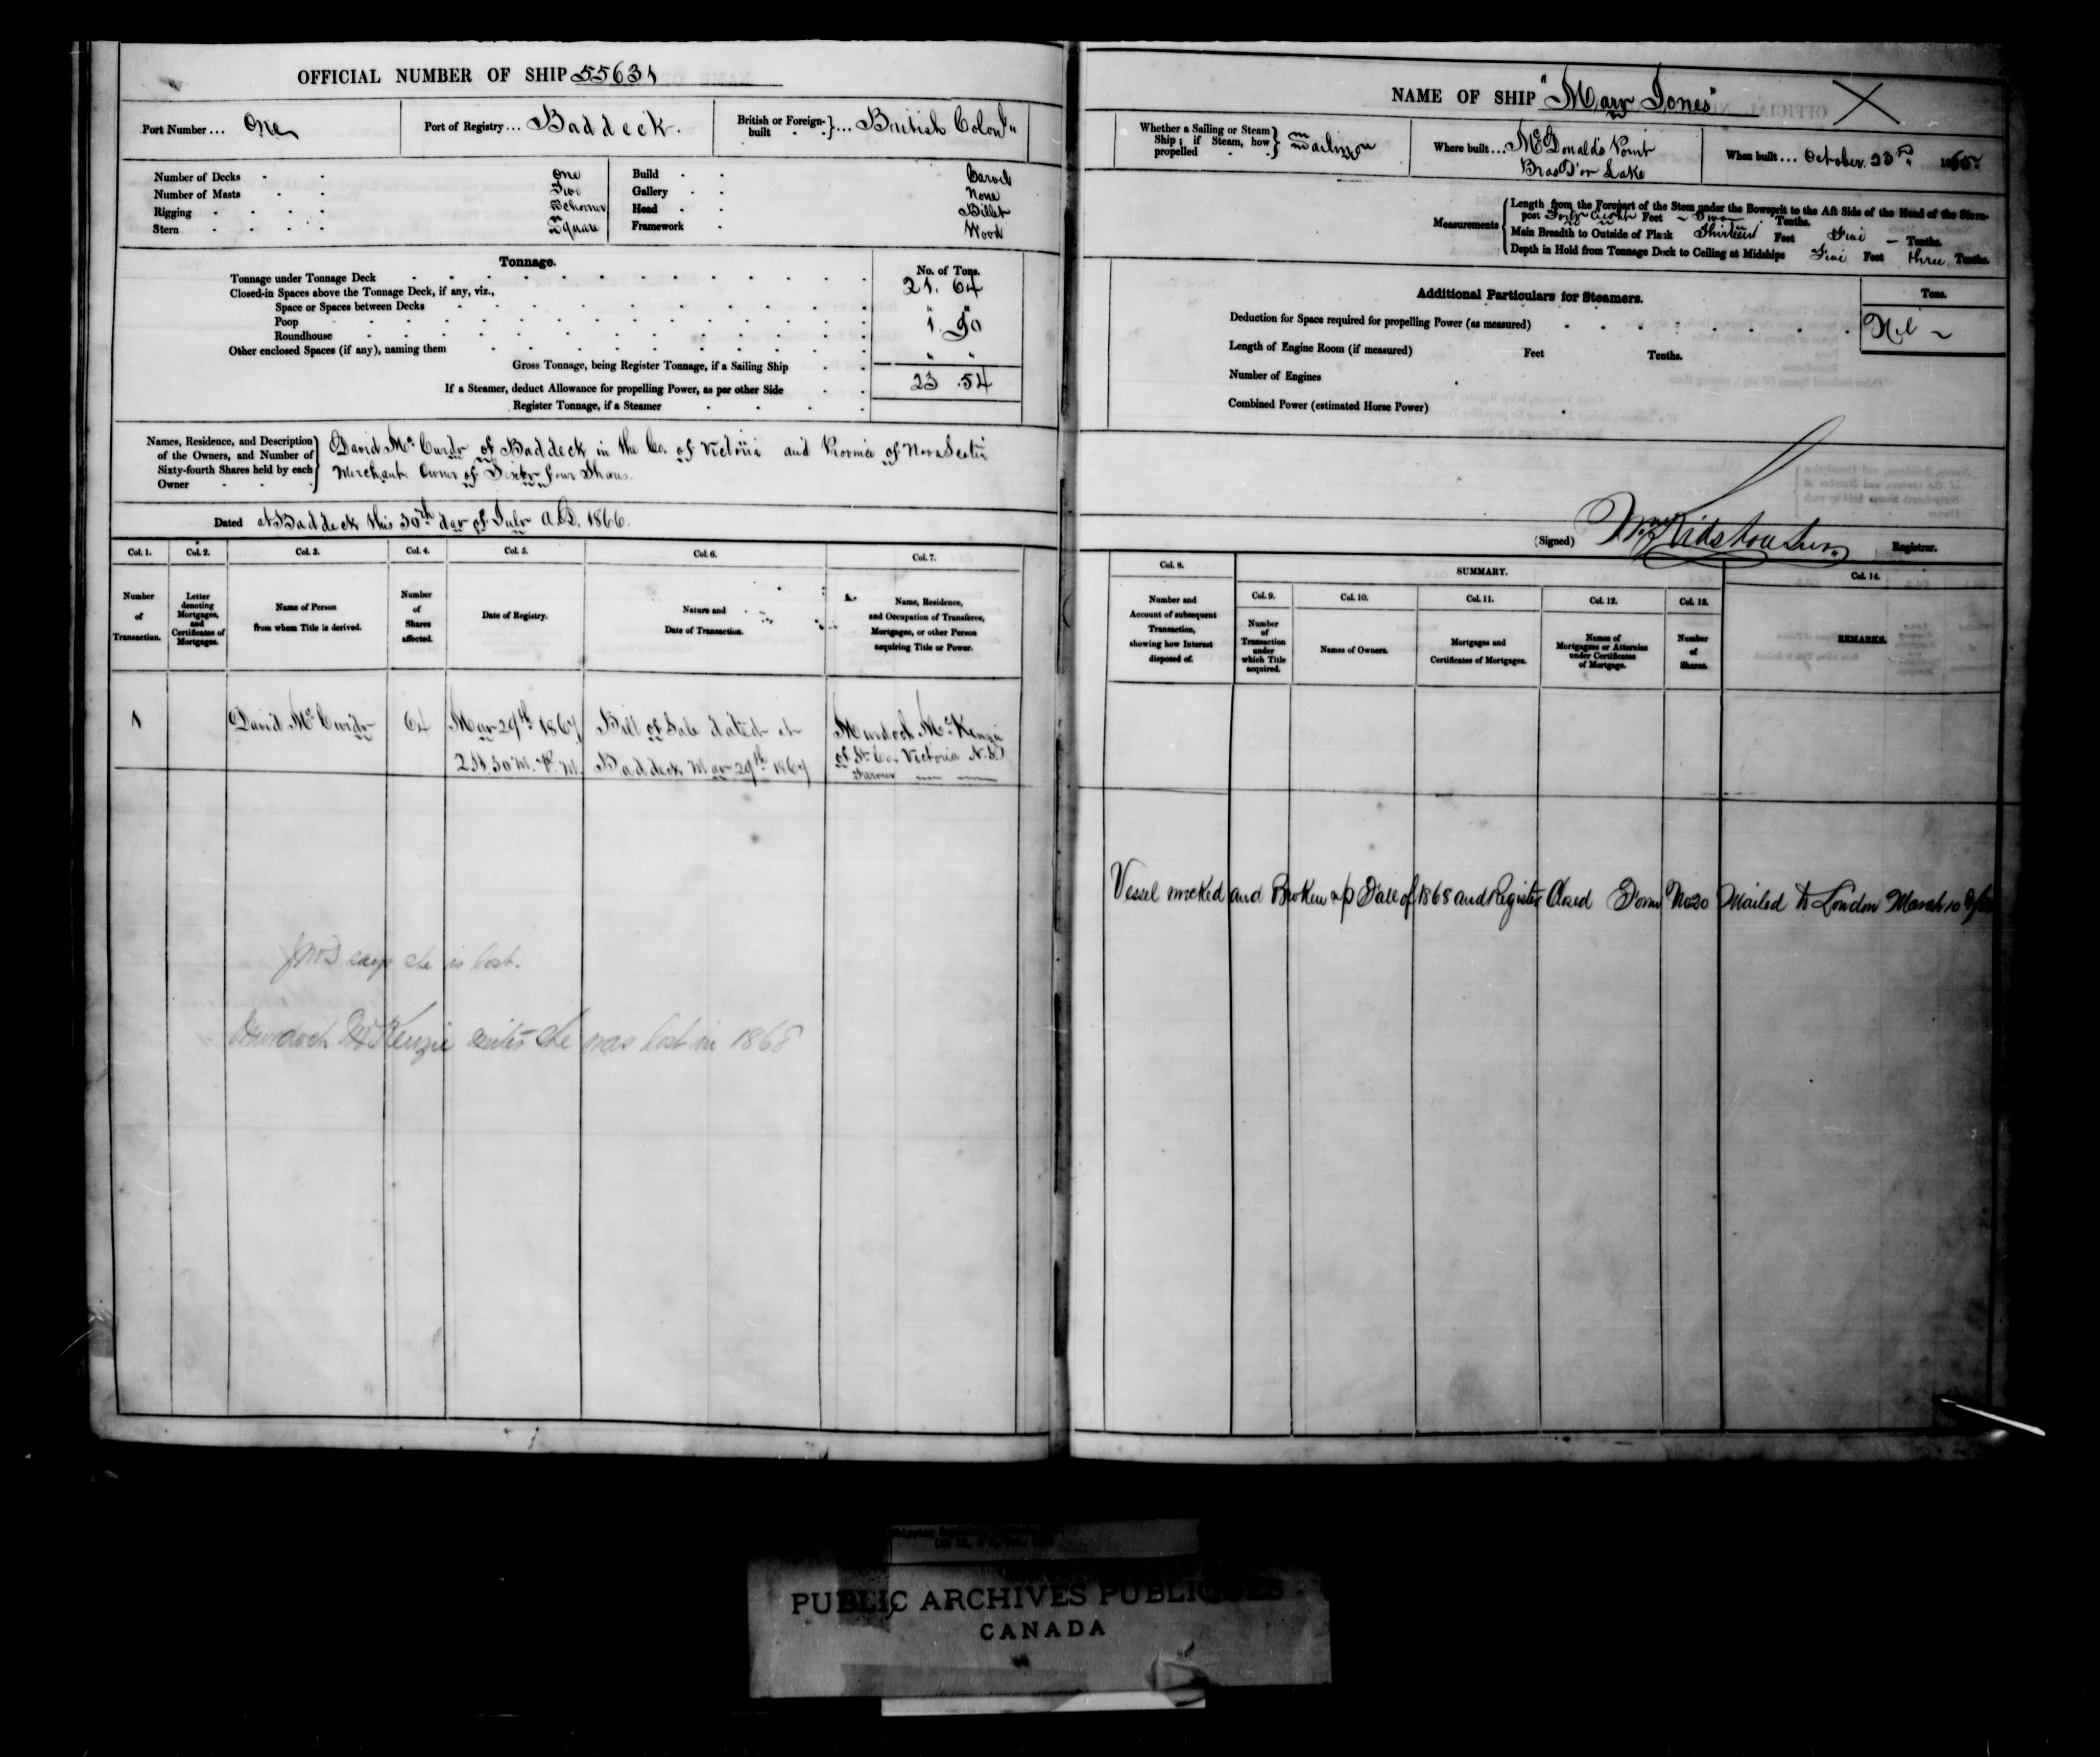 OFFICIAL NUMBER OF SHIP 55631
Port Number ... One
Port of Registry ... Baddeck.
British or Foreign-built ... British Colon"
Number of Decks One
Number of Masts Two
Rigging Schooner
Stern Square
Build Carvel
Gallery None
Head Billet
Framework Wood
Tonnage.
No. of Tons.
Tonnage under Tonnage Deck 21. 64
Closed-in Spaces above the Tonnage Deck, if any, viz.,
Space or Spaces between Decks " "
Poop 1. 90
Roundhouse
Other enclosed Spaces (if any), naming them " "
Gross Tonnage, being Register Tonnage, if a Sailing Ship 23 .54
If a Steamer, deduct Allowance for propelling Power, as per other Side
Register Tonnage, if a Steamer
Names, Residence, and Description of the Owners, and Number of Sixty-fourth Shares held by each Owner
David McCurdy of Baddeck in the Co. of Victoria and Province of Nova Scotia
Merchant Owner of Sixty four Shares.
Dated at Baddeck this 30th day of July A.D. 1866.
Col. 1. Col. 2. Col. 3. Col. 4. Col. 5. Col. 6. Col. 7.
Number of Transaction.
Letter denoting Mortgages, and Certificates of Mortgages.
Name of Person from whom Title is derived.
Number of Shares affected.
Date of Registry.
Nature and Date of Transaction.
Name, Residence, and Occupation of Transferee, Mortgagee, or other Person acquiring Title or Power.
1 David McCurdy 64 May 29th 1867 Bill of Sale dated at Murdoch McKenzie
2 H 30 M. P.M. Baddeck May 29th 1867 of St. Co. Victoria N.S.
Farmer
says she is lost.
Murdoch McKenzie writes she was lost in 1868
NAME OF SHIP "Mary Jones"
Whether a Sailing or Steam Ship; if Steam, how propelled Sailing
Where built ... McDonalds Point
Bras D'or Lake
When built ... October 23rd 1865
Measurements
Length from the Forepart of the Stem under the Bowsprit to the Aft Side of the Head of the Stern-
post Forty eight Feet Two Tenths.
Main Breadth to Outside of Plank Thirteen Feet Five Tenths.
Depth in Hold from Tonnage Deck to Ceiling at Midships Five Feet three Tenths.
Additional Particulars for Steamers.
Tons.
Deduction for Space required for propelling Power (as measured) Nil
Length of Engine Room (if measured) Feet Tenths.
Number of Engines
Combined Power (estimated Horse Power)
(Signed) Wm Kidston Junr Registrar.
Col. 8. SUMMARY. Col. 14.
Col. 9. Col. 10. Col. 11. Col. 12. Col. 13.
Number and Account of subsequent Transaction, showing how Interest disposed of.
Number of Transaction under which Title acquired.
Names of Owners.
Mortgages and Certificates of Mortgages.
Names of Mortgagees or Attornies under Certificates of Mortgage.
Number of Shares.
REMARKS.
Vessel wrecked and Broken up Fall of 1868 and Register Closed Form No 20 Mailed to London March 10
PUBLIC ARCHIVES PUBLIQUES
CANADA